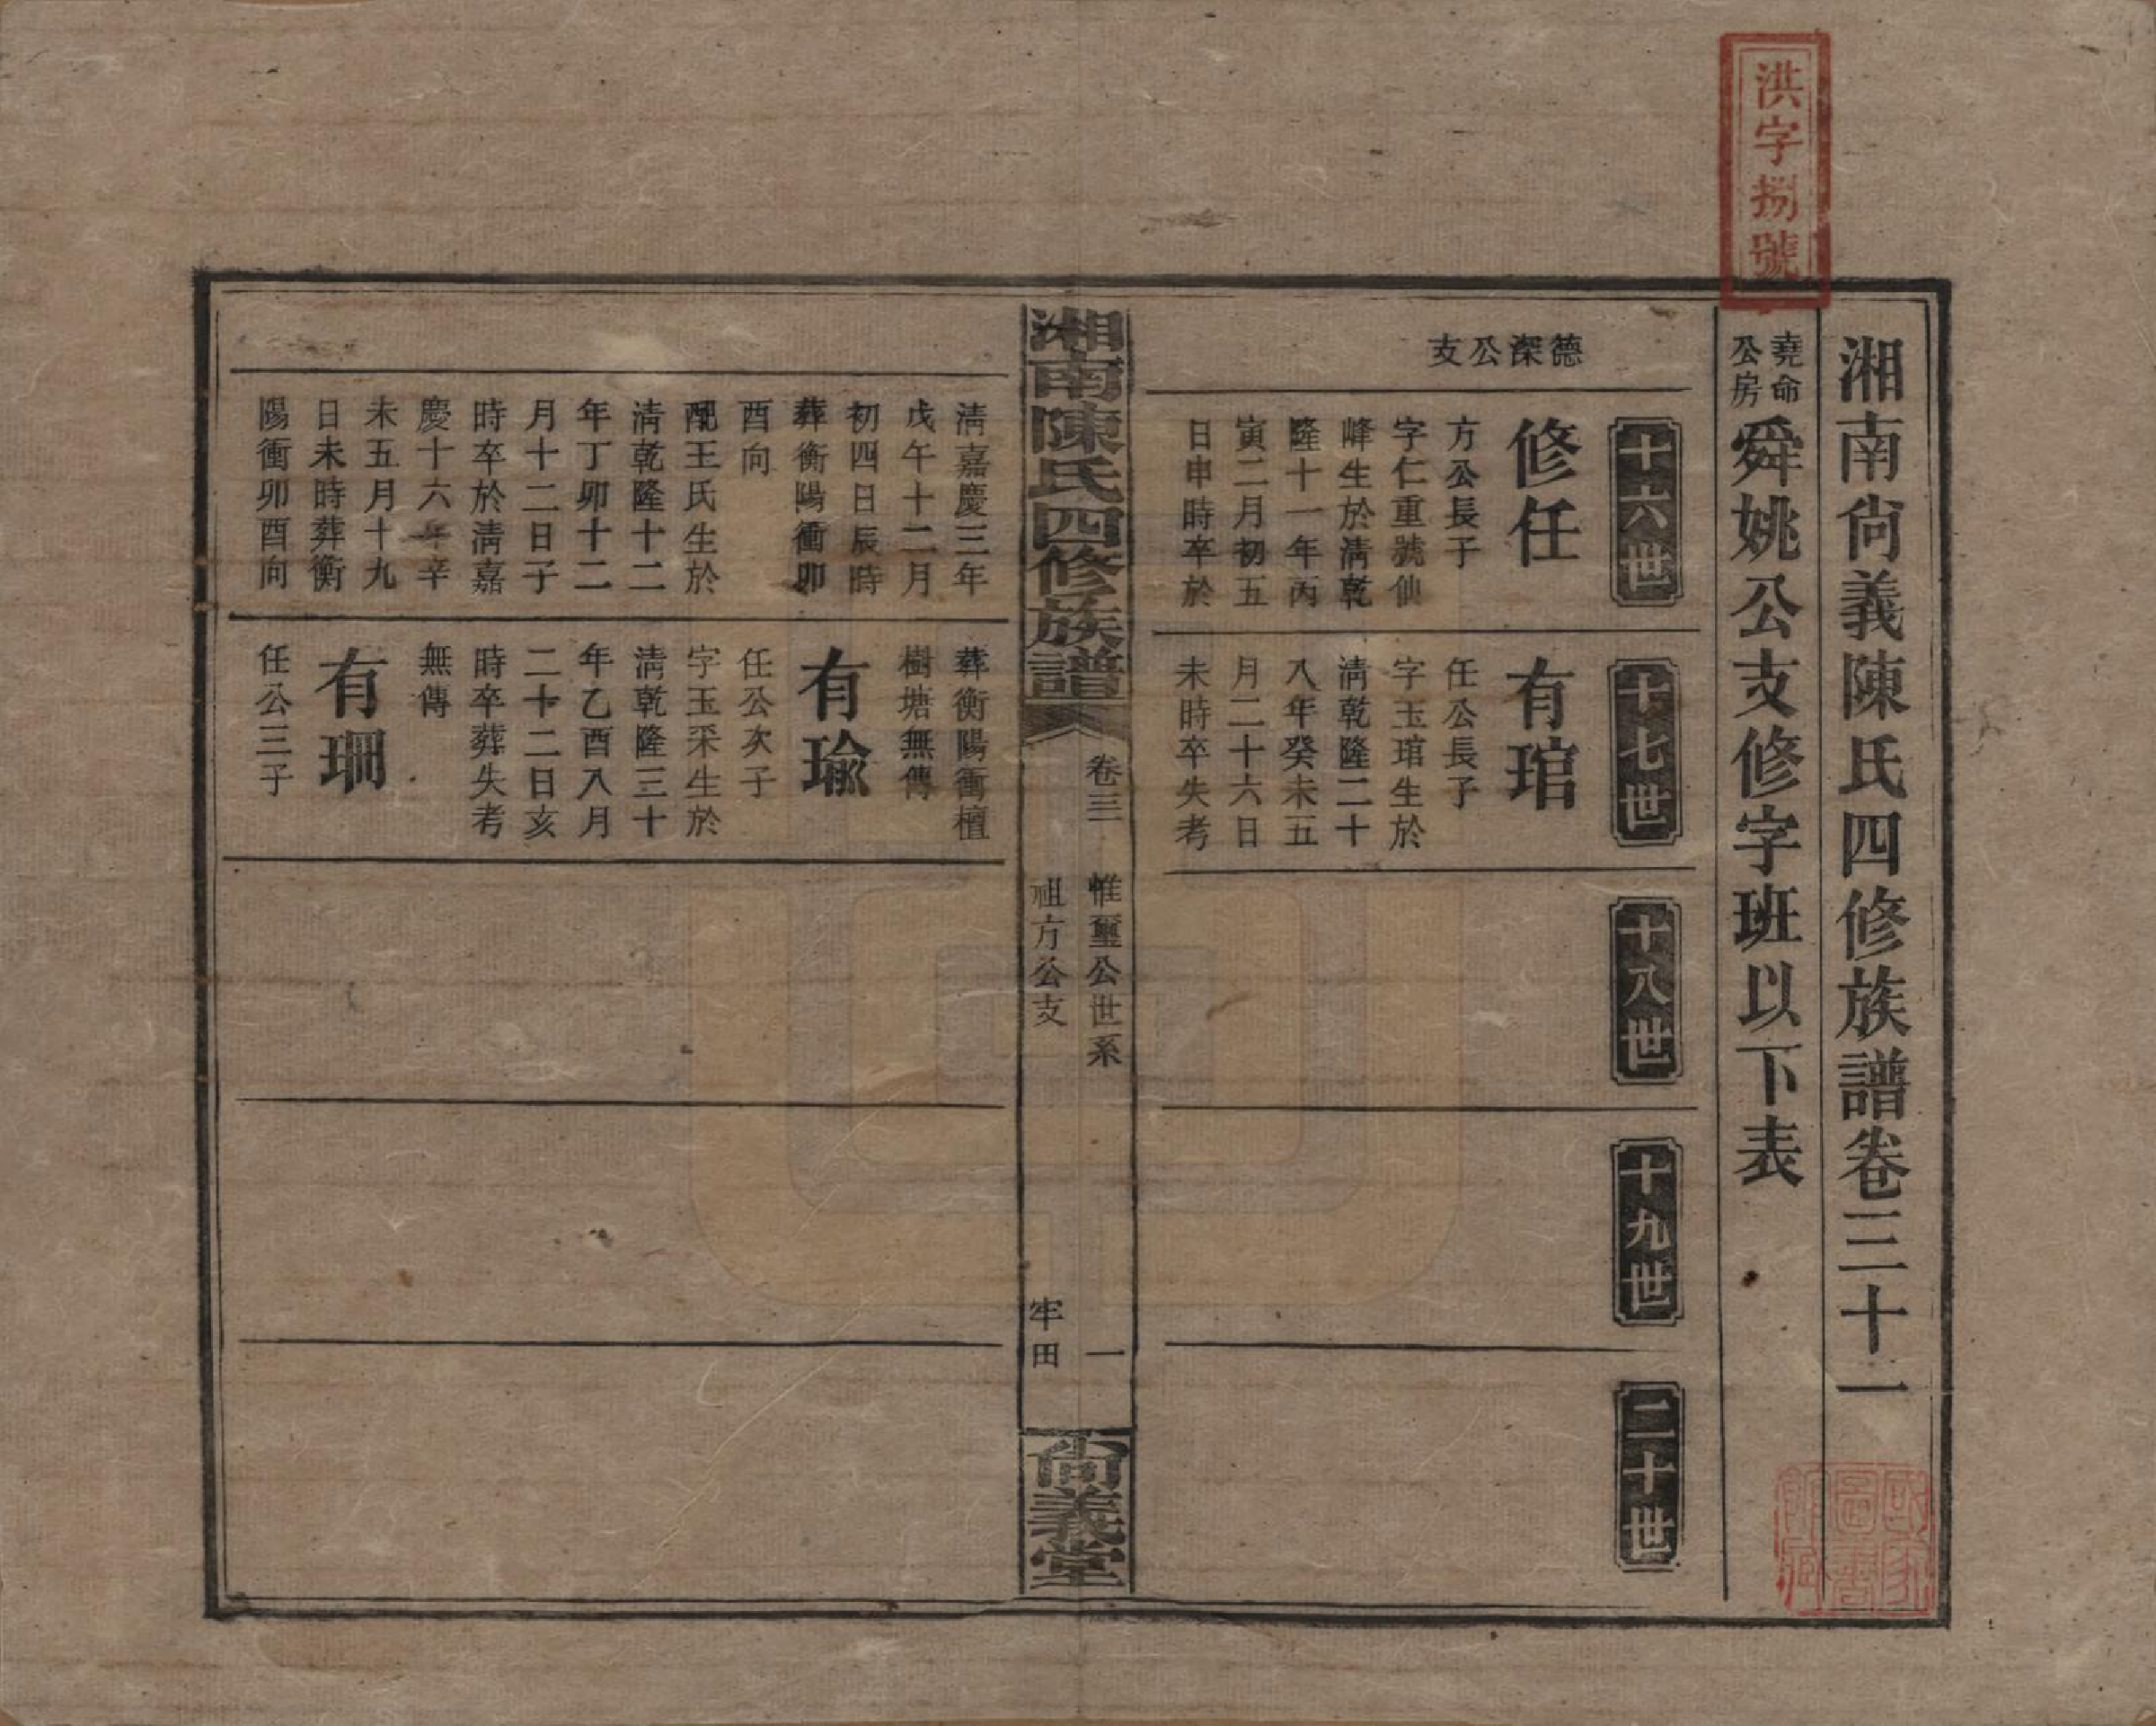 洪字捌號
湘南尙義陳氏四修族譜卷三十一
堯命
公房
舜姚公支修字班以下表
德深公支
十六世
修任
方公長子
字仁重號仙
峰生於淸乾
隆十一年丙
寅二月初五
日申時卒於
十七世
有琯
任公長子
字玉琯生於
淸乾隆二十
八年癸未五
月二十六日
未時卒失考
十八世
十九世
二十世
湘南陳氏四修族譜
卷三
惟璽公世系
祖方公支
一
牢田
尙義堂
淸嘉慶三年
戊午十二月
初四日辰時
葬衡陽衝卯
酉向
配王氏生於
淸乾隆十二
年丁卯十二
月十二日子
時卒於淸嘉
慶十六年辛
未五月十九
日未時葬衡
陽衝卯酉向
葬衡陽衝檀
樹塘無傳
有瑜
任公次子
字玉采生於
淸乾隆三十
年乙酉八月
二十二日亥
時卒葬失考
無傳
有珊
任公三子